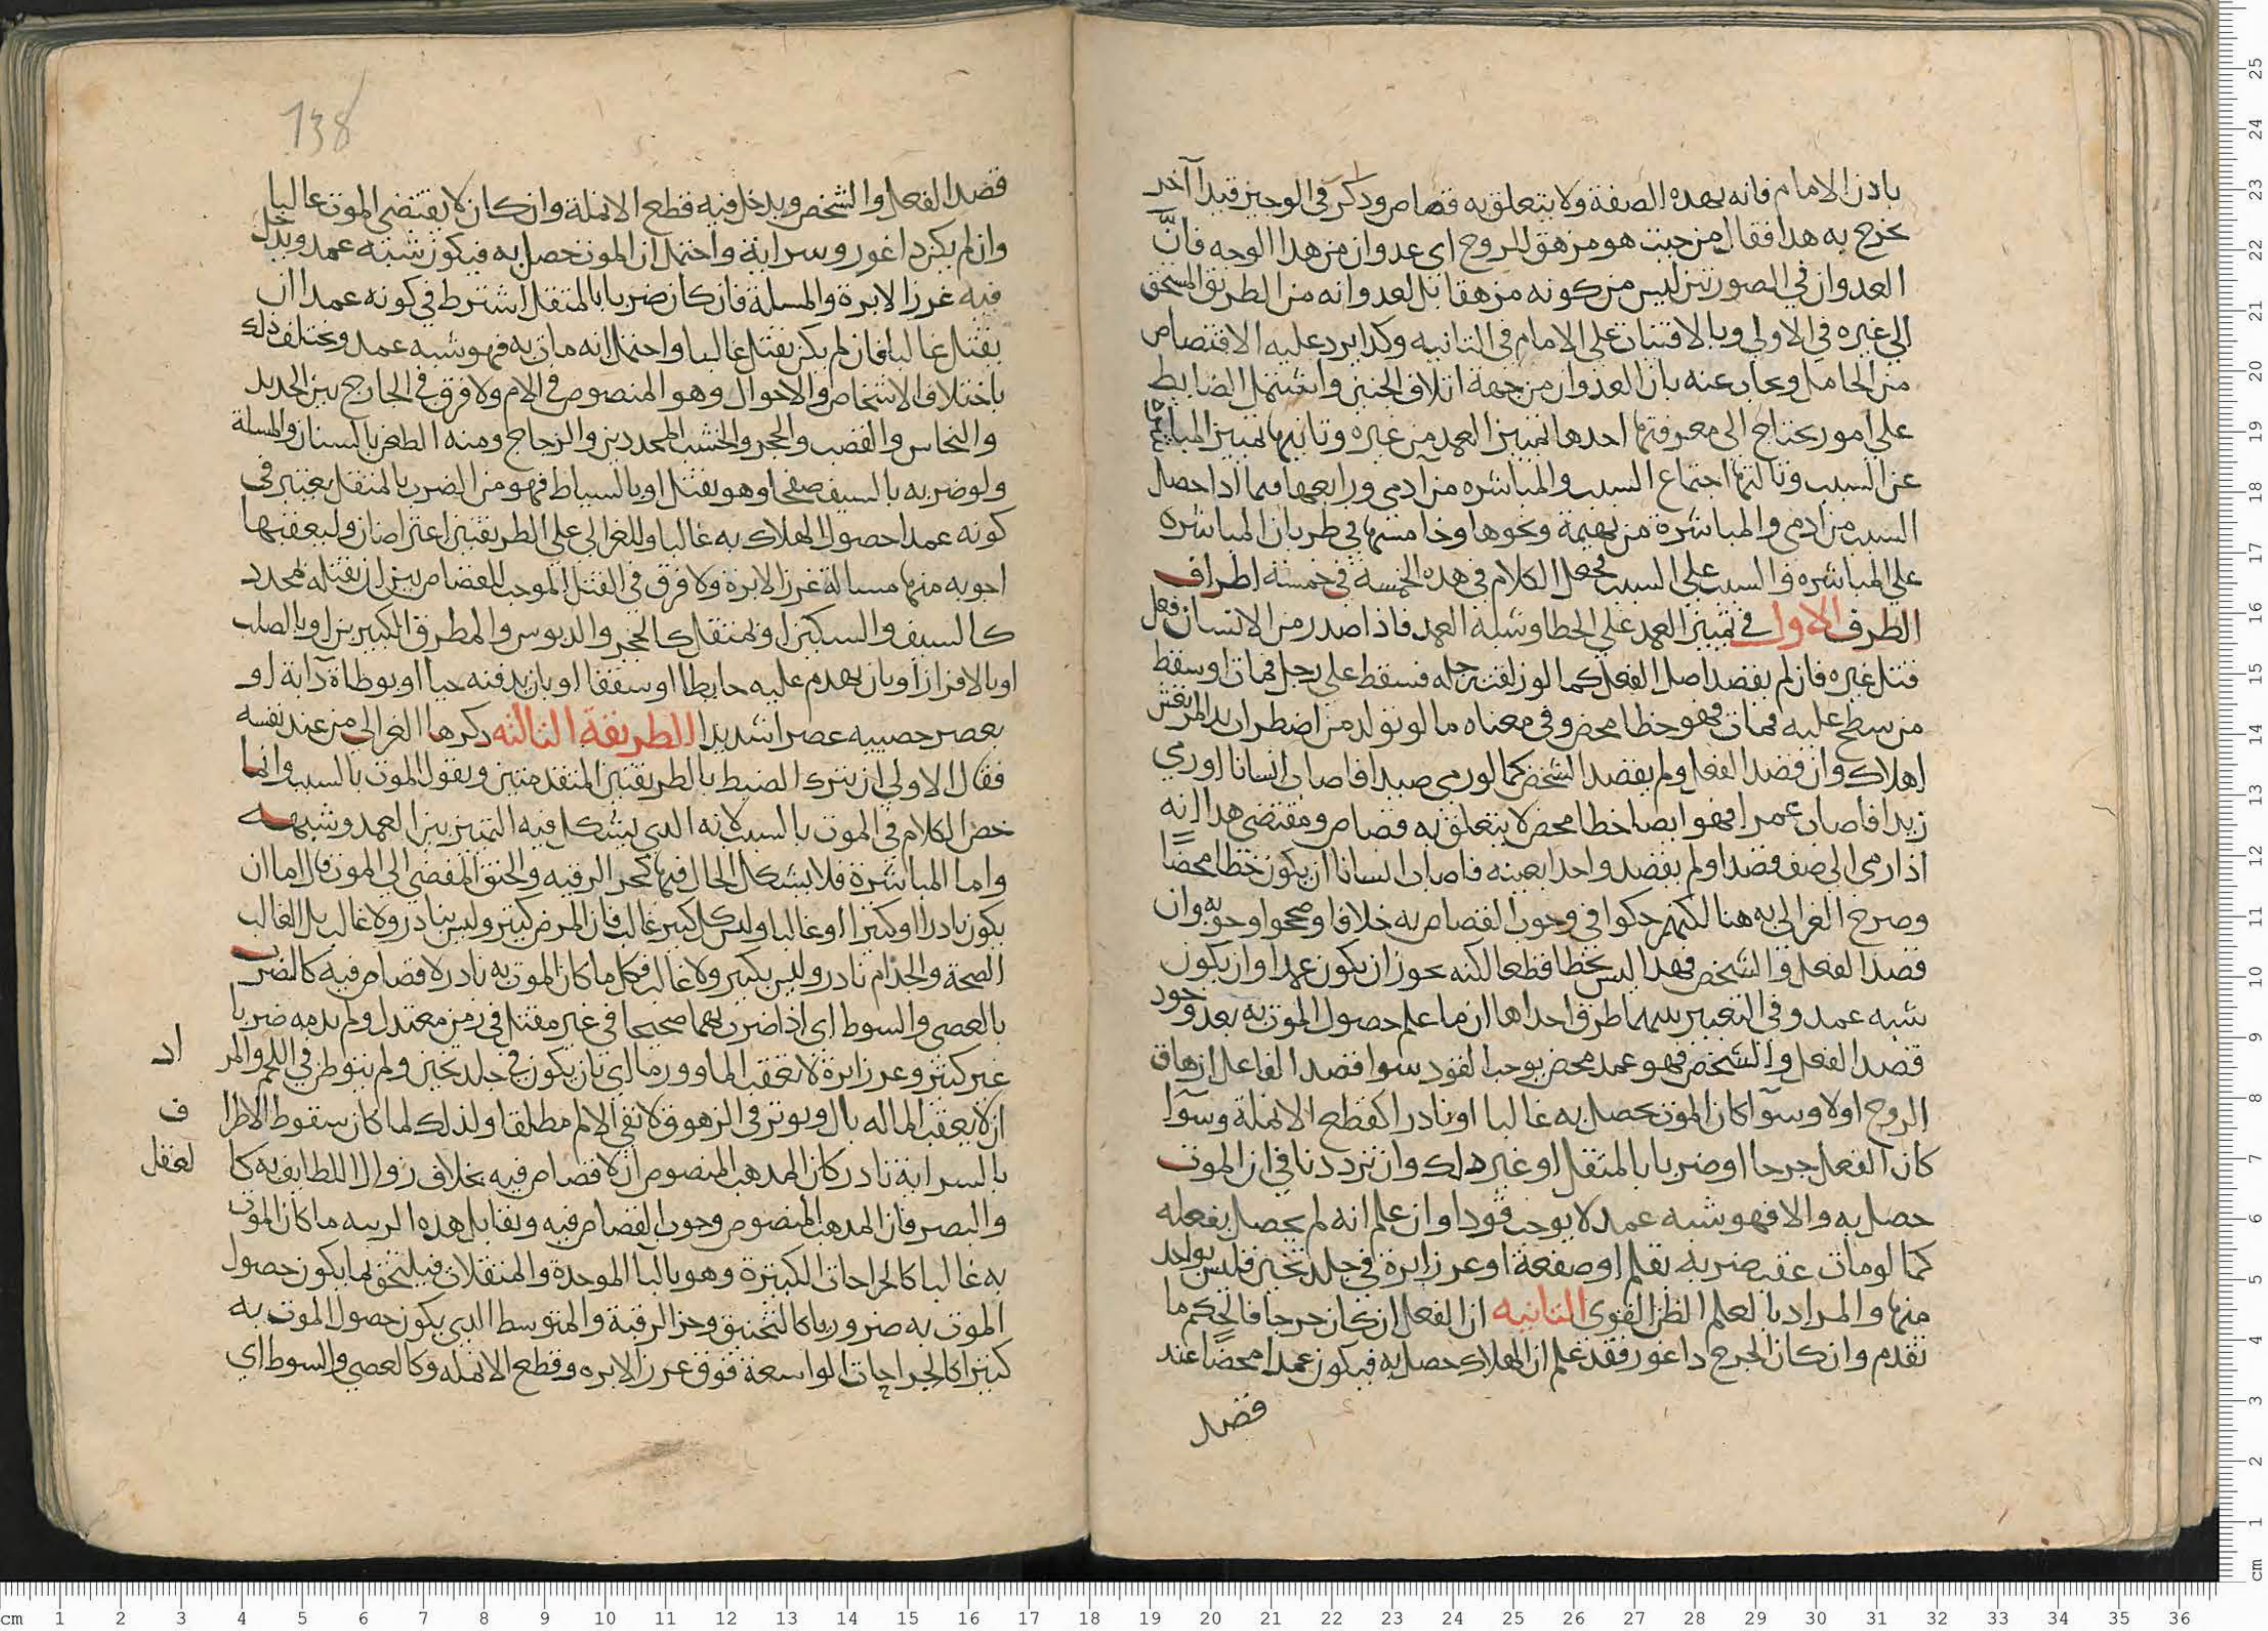 باذن الامام فانه بهذه الصفة ولا يتعلق به قصاص وذكر في الوجيز قيدا آخر
يخرج به هذا فقال من حيث هو مزهق للروح اي عدوان من هذا الوجه فانّ
العدوان في الصورتين ليس من كونه مزهقا بل لعدوانه من الطريق المستحق
الى غيره في الاولى وبالافتيات على الامام في الثانيه وكذا يرد عليه الاقتصاص
من الحامل ويجاب عنه بان العدوان من جهة اتلاف الجنين واشتمل الضابط
على امور يحتاج الى معرفتها احدها تمييز العمد من غيره وثانيها تمييز المباشرة
عن السبب وثالثها اجتماع السبب والمباشره من آدمي ورابعها فيما اذا حصل
السبب من ادمي والمباشرة من بهيمة ونحوها وخامسها في طريان المباشره
على المباشره والسبب على السبب فجعل الكلام في هذه الخمسة في خمسة اطراف
الطرف الاول في تمييز العمد على الخطا وشبه العمد فاذا صدر من الانسان فعل
قتل غيره فان لم يقصد اصل الفعل كما لو زلقت رجله فسقط على رجل فمات او سقط
من سطح عليه فمات فهو خطا محض وفي معناه ما لو تولد من اضطراب يد المرتعش
اهلاك وان قصد الفعل ولم يقصد الشخص كما لو رمى صيدا فاصاب انسانا او رمي
زيدا فاصاب عمرا فهو ايضا خطا محض لا يتعلق به قصاص ومقتضى هذا انه
اذا رمى الى صف قصدا ولم يقصد واحدا بعينه فاصاب انسانا ان يكون خطا محضًا
وصرح الغزالي به هنا لكنهم حكوا في وجوب القصاص به خلافا وصححوا وجوبه وان
قصد الفعل والشخص فهذا ليس بخطا قطعا لكنه يجوز ان يكون عمدا وان يكون
شبه عمد وفي التعبير بينهما طرق احداها ان ما علم حصول الموت به بعد وجود
قصد الفعل والشخص فهو عمد محض يوجب القود سوا قصد الفاعل ازهاق
الروح اولا وسوآ كان الموت يحصل به غالبا او نادرا كقطع الانملة وسوآ
كان الفعل جرحا او ضربا بالمثقل او غير ذلك وان ترددنا في ان الموت
حصل به والا فهو شبه عمد لا يوجب قودا وان علم انه لم يحصل بفعله
كما لو مات عقب ضربه بقلم او صفعة او غرز ابرة في جلد ثخين فليس بواحد
منها والمراد بالعلم الظن القوي الثانيه ان الفعل ان كان جرحا فالحكم ما
تقدم وان كان الجرح ذا غور فقد علم ان الهلاك حصل به فيكون عمدا محضًا عند
قصد
138
قصد الفعل والشخص ويدخل فيه قطع الانملة وان كان لا يقتضي الموت غالبا
وان لم يكن ذا غور وسراية واحتمل ان الموت حصل به فيكون شبه عمد ويدخل
فيه غرز الابرة والمسلة فان كان ضربا بالمثقل اشترط في كونه عمدا ان
يقتل غالبا فان لم يكن يقتل غالبا واحتمل انه مات به فهو شبه عمد ويختلف ذلك
باختلاف الاشخاص والاحوال وهو المنصوص في الام ولا فرق في الجارح بين الحديد
والنحاس والقصب والحجر والخشب المحددين والزجاج ومنه الطعن بالسنان والمسلة
ولو ضربه بالسيف صفحا وهو يقتل او بالسياط فهو من الضرب بالمثقل يعتبر في
كونه عمدا حصول الهلاك به غالبا وللغزالي على الطريقتين اعتراضان وليعقبها
اجوبه منها مسالة غرز الابرة ولا فرق في القتل الموجب للقصاص بين ان يقتله بمحدد
كالسيف والسكين او بمثقل كالحجر والدبوس والمطرق الكبيرين او بالصلب
او بالافزاز او بان يهدم عليه حايطا او سقفا او بان يدفنه حيا او بوطاة دابة او
بعصر خصييه عصرا شديدا الطريقة الثالثه ذكرها الغزالي من عند نفسه
فقال الاولى ان يترك الضبط بالطريقتين المتقدمتين ويقول الموت بالسبب وانما
خص الكلام في الموت بالسبب لانه الذي يشكل فيه التمييز بين العمد وشبهه
واما المباشرة فلا يشكل الحال فيها كحز الرقبه والخنق المفضي الى الموت قال اما ان
يكون نادرا او كثيرا او غالبا وليس كل كثير غالب فان المرض كثير وليس بنادر ولا غالب بل الغالب
الصحة والجذام نادر وليس بكثير ولا غالب فكل ما كان الموت به نادر لا قصاص فيه كالضرب
بالعصى والسوط اي اذا ضرب بهما صحيحا في غير مقتل في زمن معتدل ولم يدمه ضربا
غير كثير وغرز ابرة لا تعقب الما وورما اي بان يكون في جلد ثخين ولم يتوطن في اللحم والمراد
ان لا يعقب الما له بال ويوثر في الزهوق لا نفي الالم مطلقا ولذلك لما كان سقوط الاطراف
بالسراية نادر كان المذهب المنصوص ان لا قصاص فيه بخلاف زوال اللطايف به كالعقل
والبصر فان المذهب المنصوص وجوب القصاص فيه وتقابل هذه الرتبه ما كان الموت
به غالبا كالجراحات الكثيرة وهو بالبا الموحدة والمثقلات فيلتحق بما يكون حصول
الموت به ضروريا كالتخنيق وحز الرقبة والمتوسط الذي يكون حصول الموت به
كثيرا كالجراحات الواسعة فوق غرز الابره وقطع الانمله وكالعصى والسوط اي